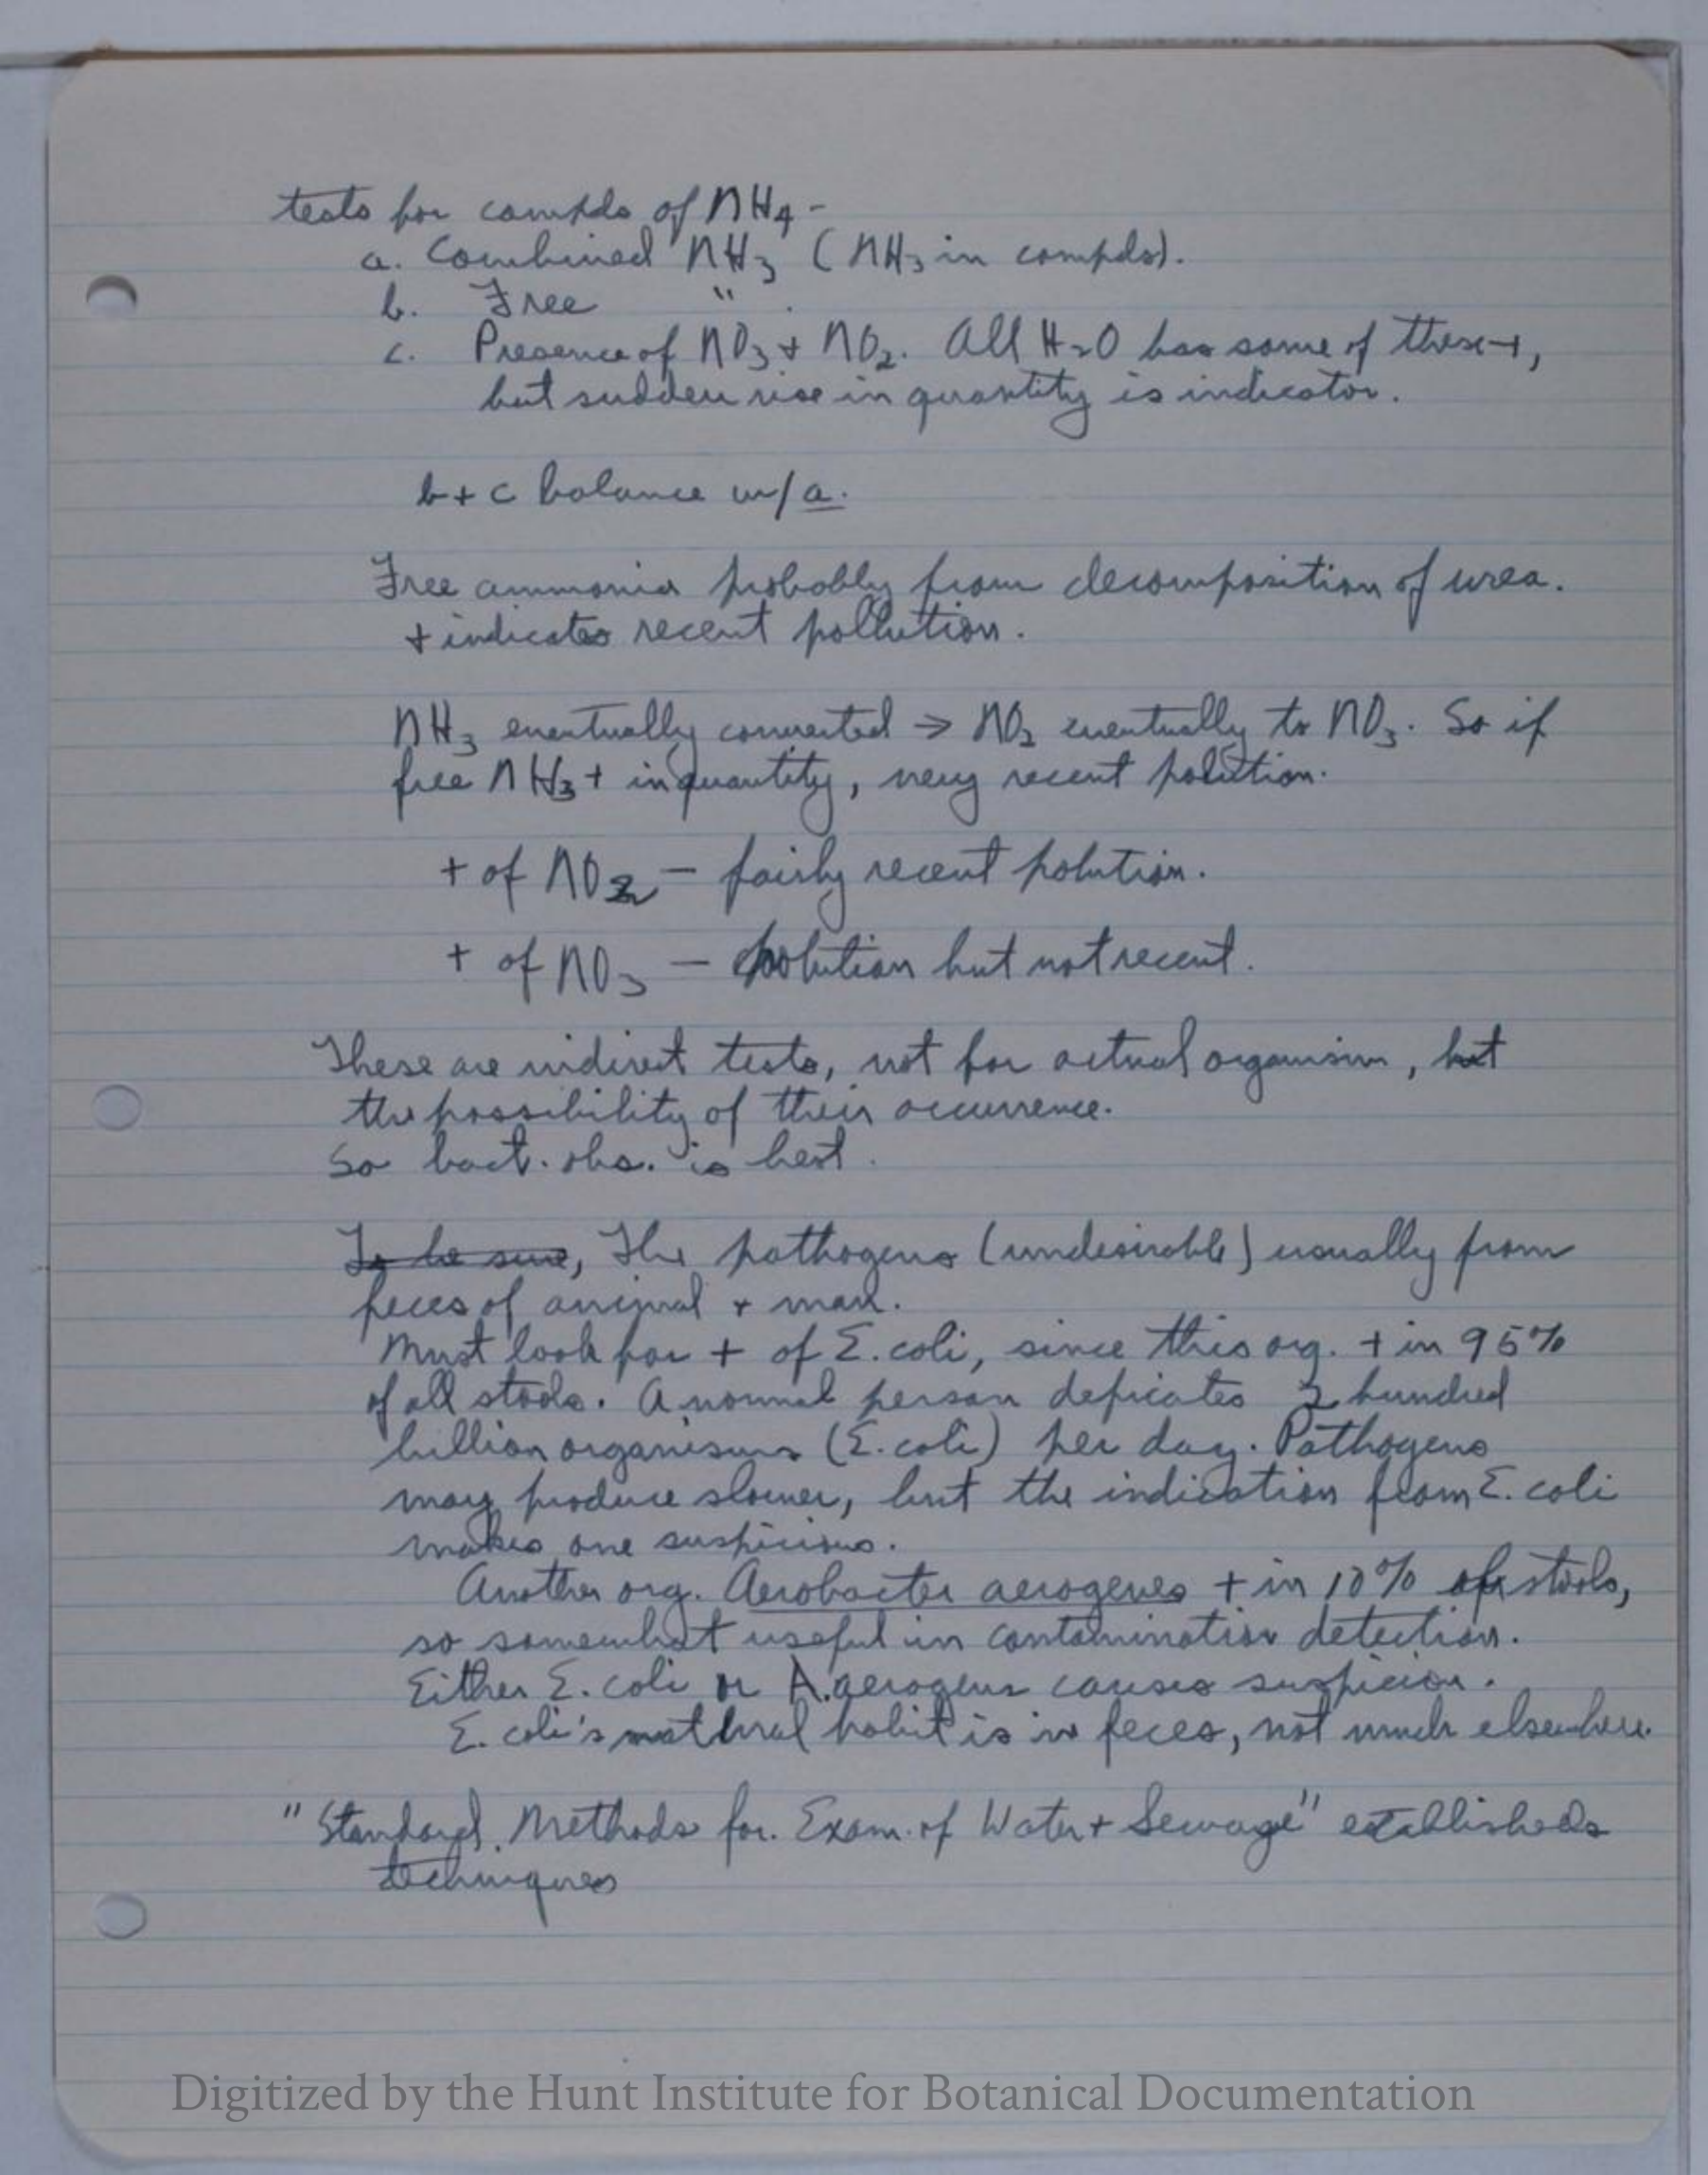 tests for compds of NH4 -
a. Combined NH3 (NH3 in compds).
b. Free " .
c. Presence of NO3 + NO2. All H2O has some of these +,
but sudden rise in quantity is indicator.
b + c balance w/ a.
Free ammonia probably from decomposition of urea.
+ indicates recent pollution.
NH3 eventually converted → NO2 eventually to NO3. So if
free NH3 + in quantity, very recent polution.
+ of NO2 — fairly recent polution.
+ of NO3 — polution but not recent.
These are indirect tests, not for actual organism, but
the possibility of their occurrence.
So bact. obs. is best.
To be sure, The pathogens (undesirable) usually from
feces of animal + man.
Must look for + of E. coli, since this org. + in 95%
of all stools. A normal person deficates 2 hundred
billion organisms (E. coli) per day. Pathogens
may produce slower, but the indication from E. coli
makes one suspicious.
Another org. Aerobacter aerogenes + in 10% of stools,
so somewhat useful in contamination detection.
Either E. coli or A. aerogenes causes suspicion.
E. coli's natural habit is in feces, not much elsewhere.
"Standard Methods for Exam. of Water + Sewage" establisheds
techniques
Digitized by the Hunt Institute for Botanical Documentation